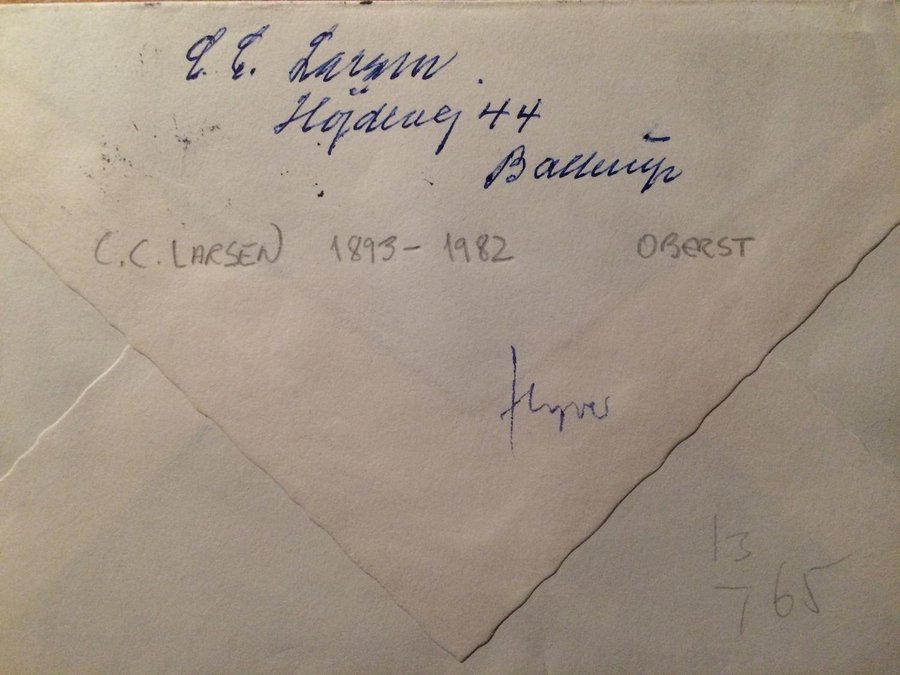 C. C. Larsen.
Höjdevej 44
Ballerup
C.C. LARSEN 1893-1982 OBERST
flyver
13
7 65